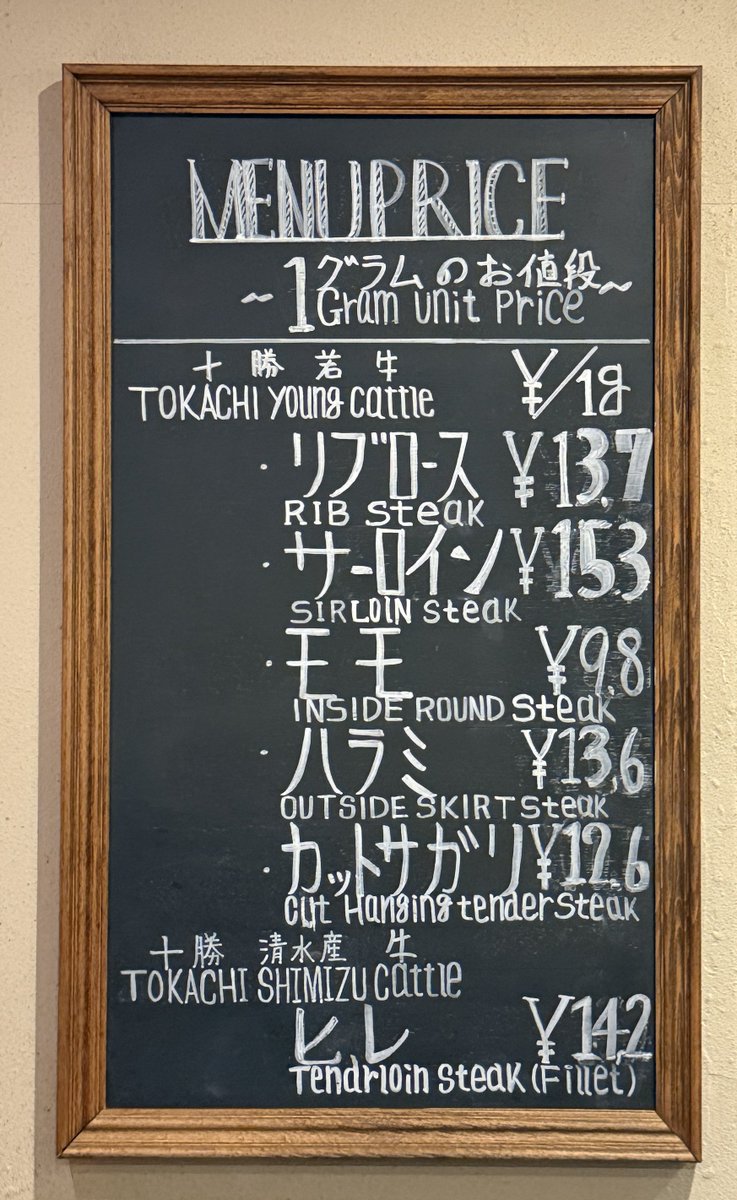 MENU PRICE
~1グラムのお値段~
Gram unit Price
十勝若牛 ¥/1g
TOKACHI young cattle
・リブロース ¥13.7
RIB steak
・サーロイン ¥15.3
SIRLOIN steak
・モモ ¥9.8
INSIDE ROUND steak
・ハラミ ¥13,6
OUTSIDE SKIRT steak
・カットサガリ ¥12.6
cut Hanging tender steak
十勝 清水産 牛
TOKACHI SHIMIZU cattle
ヒレ ¥14,2
Tendrloin steak (Fillet)